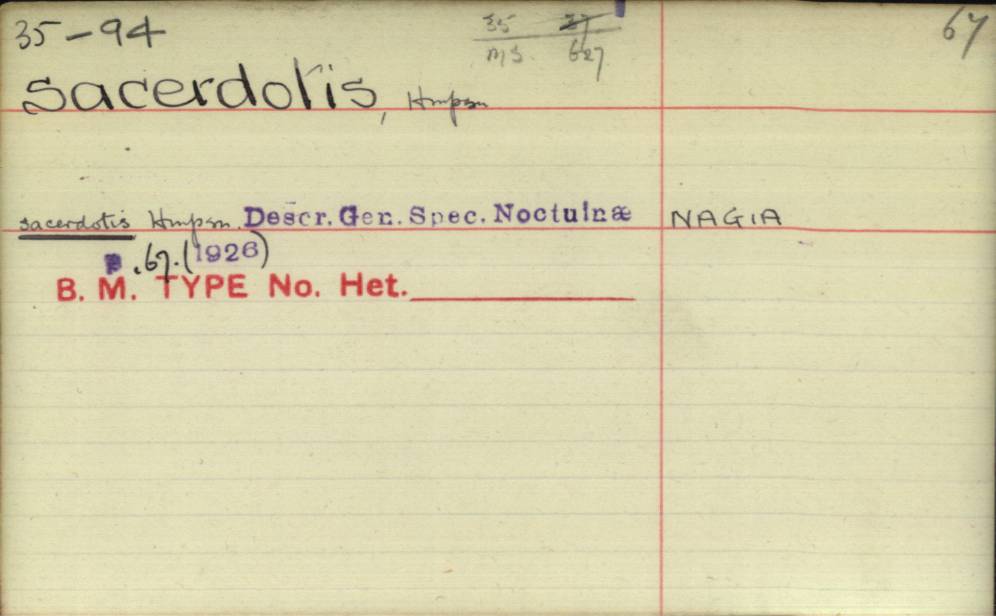 35-94
35 27
MS. 627
67
sacerdotis, Hmpsn
sacerdotis Hmpsn. Descr. Gen. Spec. Noctuinæ NAGIA
P.67.(1926)
B. M. TYPE No. Het.